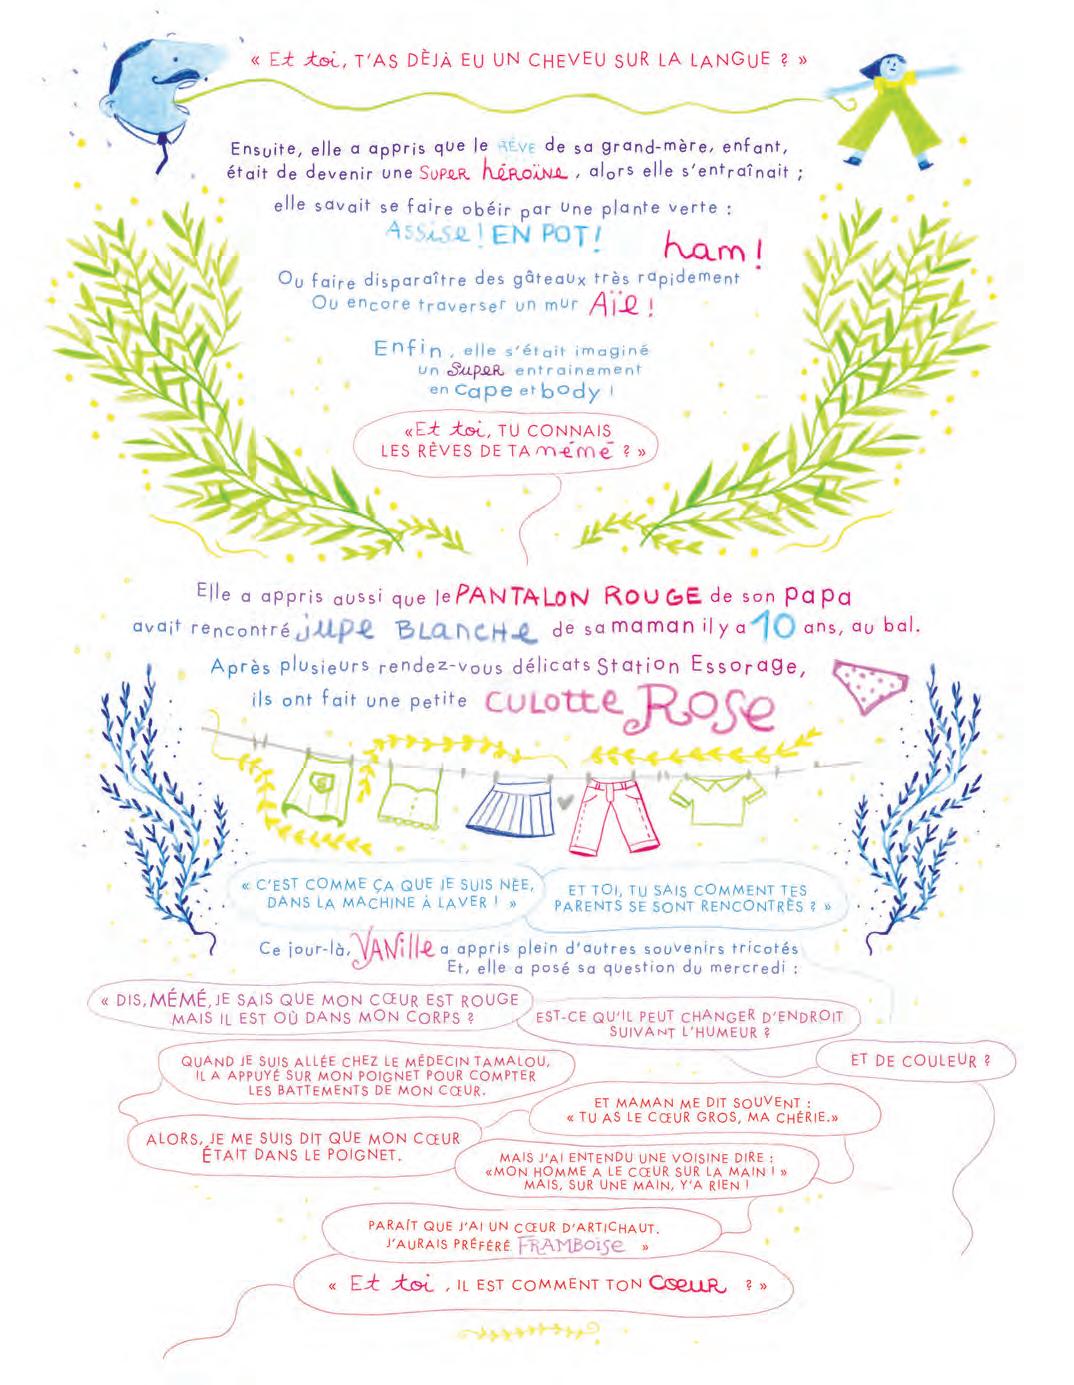 « Et toi, T'AS DÈJÀ EU UN CHEVEU SUR LA LANGUE ? »
Ensuite, elle a appris que le RÊVE de sa grand-mère, enfant,
était de devenir une SUPER héroïne, alors elle s'entraînait ;
elle savait se faire obéir par une plante verte :
Assise ! EN POT !
ham !
Ou faire disparaître des gâteaux très rapidement
Ou encore traverser un mur Aïe !
Enfin, elle s'était imaginé
un Super entrainement
en cape et body !
« Et toi, TU CONNAIS
LES RÊVES DE TA mémé ? »
Elle a appris aussi que le PANTALON ROUGE de son papa
avait rencontré jupe BLANCHE de sa maman il y a 10 ans, au bal.
Après plusieurs rendez-vous délicats Station Essorage,
ils ont fait une petite CULOTTE Rose
« C'EST COMME ÇA QUE JE SUIS NÉE,
DANS LA MACHINE À LAVER ! »
ET TOI, TU SAIS COMMENT TES
PARENTS SE SONT RENCONTRÈS ? »
Ce jour-là, VANille a appris plein d'autres souvenirs tricotés
Et, elle a posé sa question du mercredi :
« DIS, MÉMÉ, JE SAIS QUE MON CŒUR EST ROUGE
MAIS IL EST OÙ DANS MON CORPS ?
EST-CE QU'IL PEUT CHANGER D'ENDROIT
SUIVANT L'HUMEUR ?
ET DE COULEUR ?
QUAND JE SUIS ALLÉE CHEZ LE MÉDECIN TAMALOU,
IL A APPUYÉ SUR MON POIGNET POUR COMPTER
LES BATTEMENTS DE MON CŒUR.
ALORS, JE ME SUIS DIT QUE MON CŒUR
ÉTAIT DANS LE POIGNET.
ET MAMAN ME DIT SOUVENT :
« TU AS LE CŒUR GROS, MA CHÉRIE.»
MAIS J'AI ENTENDU UNE VOISINE DIRE :
«MON HOMME A LE CŒUR SUR LA MAIN ! »
MAIS, SUR UNE MAIN, Y'A RIEN !
PARAÎT QUE J'AI UN CŒUR D'ARTICHAUT.
J'AURAIS PRÉFÉRÉ FRAMBOISE »
« Et toi, IL EST COMMENT TON CŒUR ? »